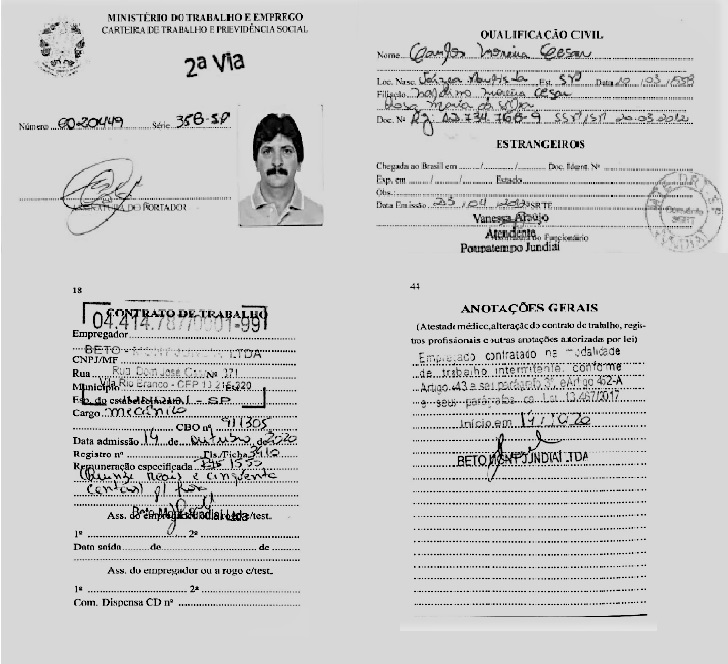 MINISTÉRIO DO TRABALHO E EMPREGO
CARTEIRA DE TRABALHO E PREVIDÊNCIA SOCIAL
2ª Via
Número 60-20449 Série 358-SP
ASSINATURA DO PORTADOR
QUALIFICAÇÃO CIVIL
Nome Carlos Moreira Cesar
Loc. Nasc. Est. SP Data
Filiação Moreira Cesar
Rosa Maria da Silva
Doc. Nº RG: 734.768-9 SSP/SP 20.03.2012
ESTRANGEIROS
Chegada ao Brasil em / / Doc. Ident. Nº
Exp. em / / Estado
Obs.:
Data Emissão 23.04.2012 SRTE
Vanessa Araujo
Atendente
Poupatempo Jundiaí
18
CONTRATO DE TRABALHO
04.414.787/0001-99
Empregador
BETO - MONT JUNDIAÍ LTDA
CNPJ/MF
Rua Rua Dom José Nº 371
Município Vila Rio Branco - CEP 13.215-320
Esp. do estabelecimento - SP
Cargo mecânico
CBO nº 911305
Data admissão 14 de outubro de 2020
Registro nº Fls./Ficha
Remuneração especificada
(Quinze reais e cinquenta
centavos) p/ hora
Beto Mont Jundiaí Ltda
Ass. do empregador ou a rogo c/test.
1º 2º
Data saída de de
Ass. do empregador ou a rogo c/test.
1º 2ª
Com. Dispensa CD nº
44
ANOTAÇÕES GERAIS
(Atestado médico, alteração do contrato de trabalho, regis-
tros profissionais e outras anotações autorizadas por lei)
Empregado contratado na modalidade
de trabalho intermitente, conforme
Artigo 443 e seu parágrafo 3º, e Artigo 452-A
e seus parágrafos ca Lei 13.467/2017
Início em 14/10/20
BETO MONT JUNDIAÍ LTDA